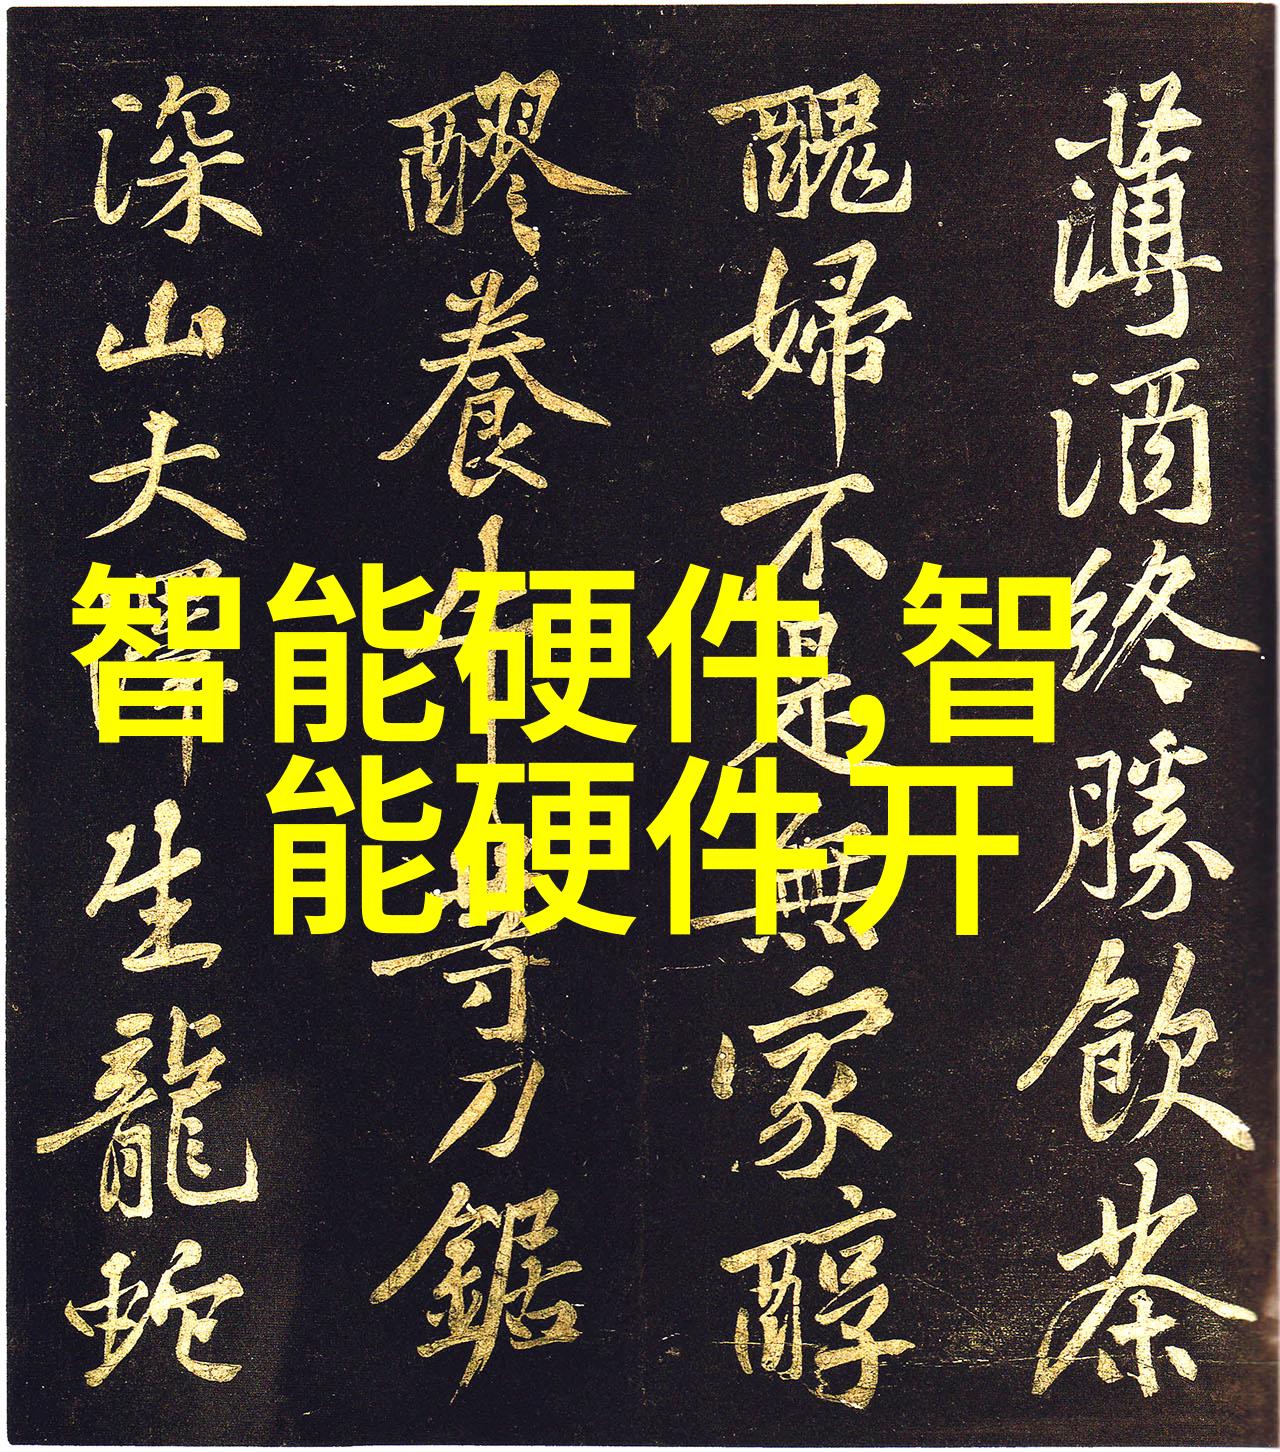 薄酒終勝飲茶
醜婦不是無家醇
醪養牛等刀鋸
深山大澤生龍蛇
智能硬件,智
能硬件开